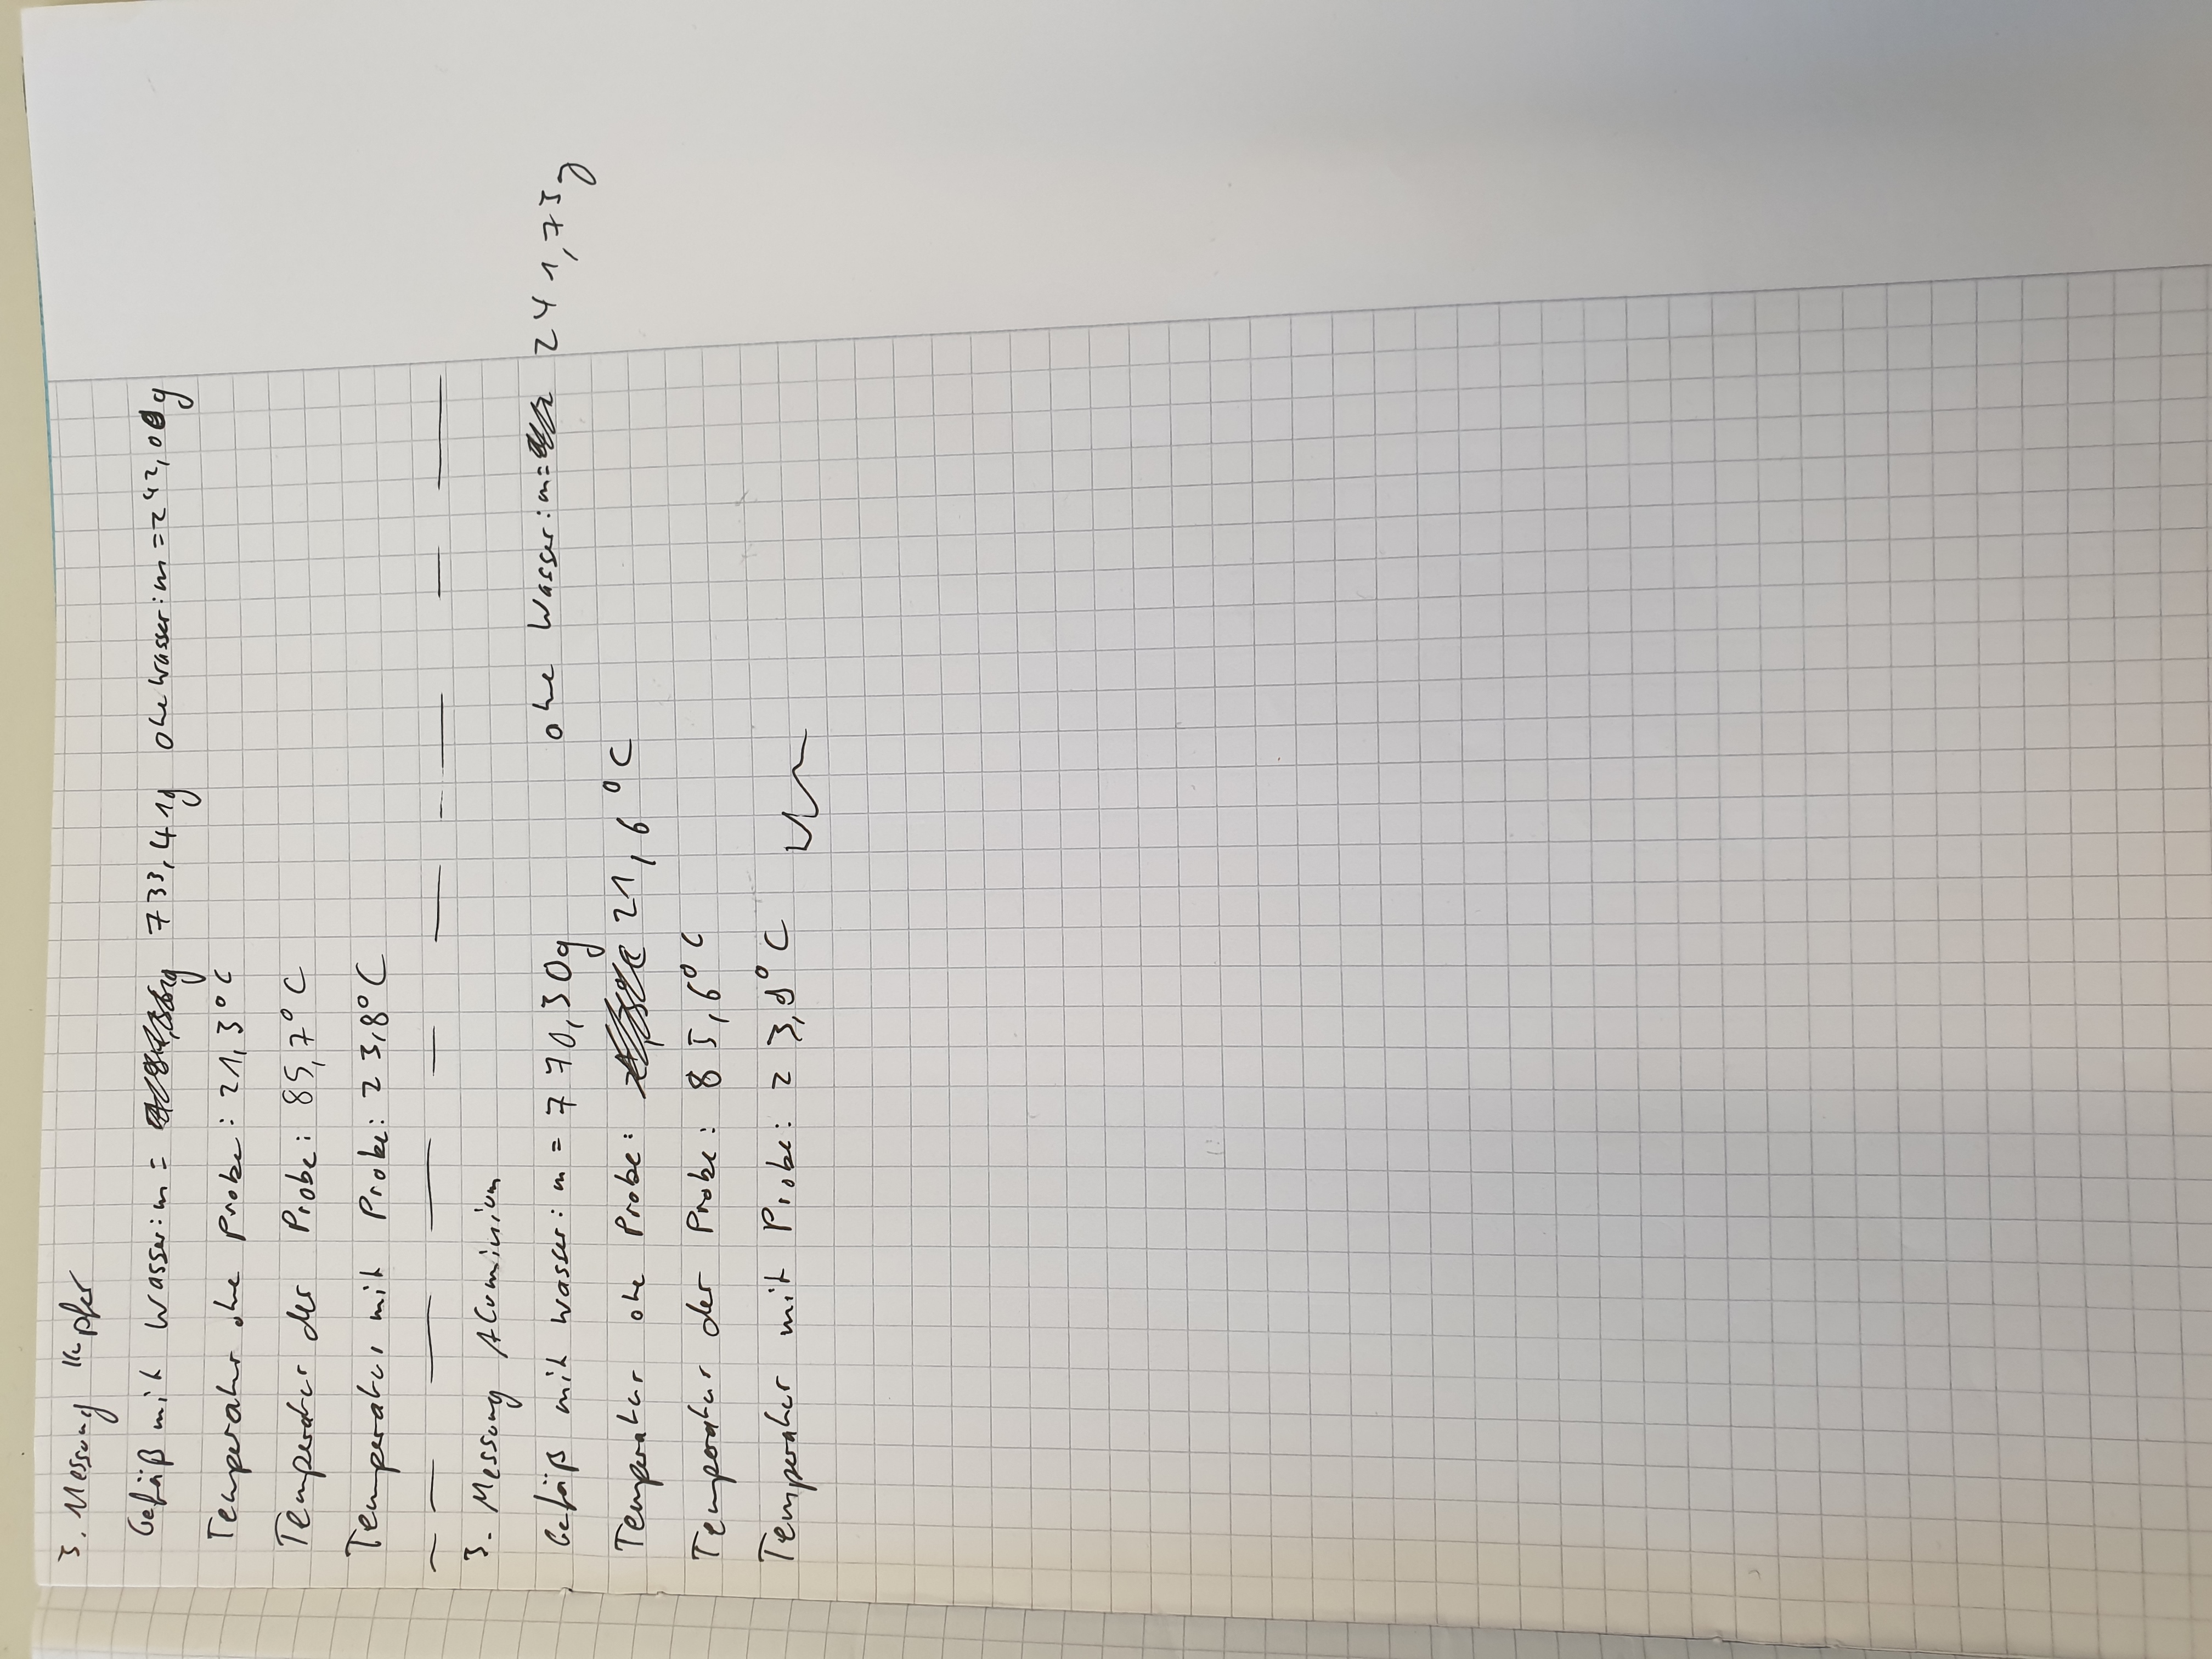 3. Messung Kupfer
Gefäß mit Wasser: m = 733,41g ohe Wasser: m = 242,00g
Temperatur ohe Probe: 21,3°C
Temperatur der Probe: 85,7°C
Temperatur mit Probe: 23,8°C
3. Messung Aluminium
Gefäß mit Wasser: m = 770,30g ohe Wasser: m = 241,75g
Temperatur ohe Probe: 21,6°C
Temperatur der Probe: 85,6°C
Temperatur mit Probe: 23,8°C